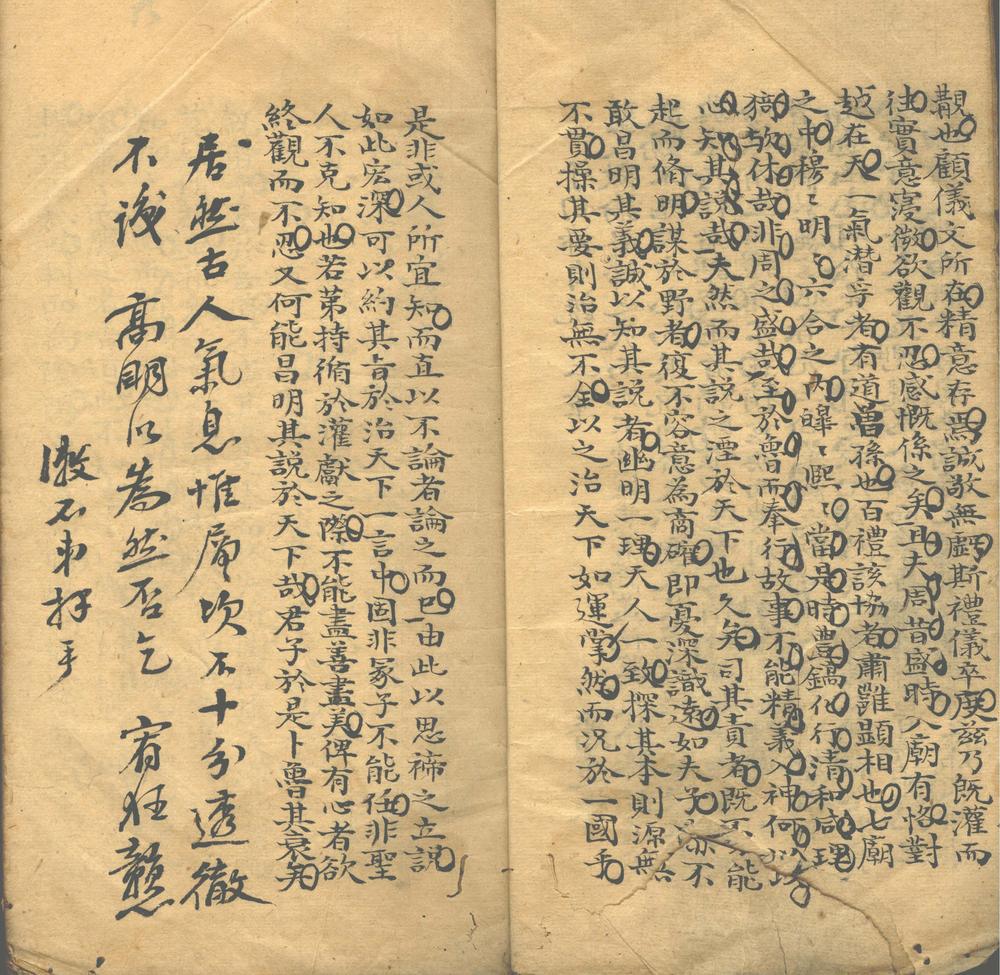 覯也顧儀文所在精意存焉誠敬無虧斯禮儀卒度茲乃既灌而
往實意寖微欲觀不忍感慨係之矣且夫周昔盛時入廟有恪對
越在天一氣潛孚者有道曾孫也百禮該協者肅雝顯相也七廟
之中穆〻明〻六合之內皞〻熙〻當是時豊鎬化行清和咸理
猗歟休哉非周之盛哉至於魯而奉行故事不能精義入神何以
心知其說哉夫然而其說之湮於天下也久矣司其責者既不能
起而脩明謀於野者復不容意為商確即憂深識遠如夫子亦不
敢昌明其義誠以知其說者幽明一理天人一致探其本則源無
不貫操其要則治無不全以之治天下如運掌然而况於一國乎
是非或人所宜知而直以不論者論之而已由此以思禘之立說
如此宏深可以約其旨於治天下一言中固非冢子不能任非聖
人不克知也若苐持循於灌獻之際不能盡善盡美俾有心者欲
終觀而不忍又何能昌明其說於天下哉君子於是卜魯其衰矣
居然古人氣息惟 不十分透徹
不識 高明以為然否乞 宥狂戇
石弟拜手